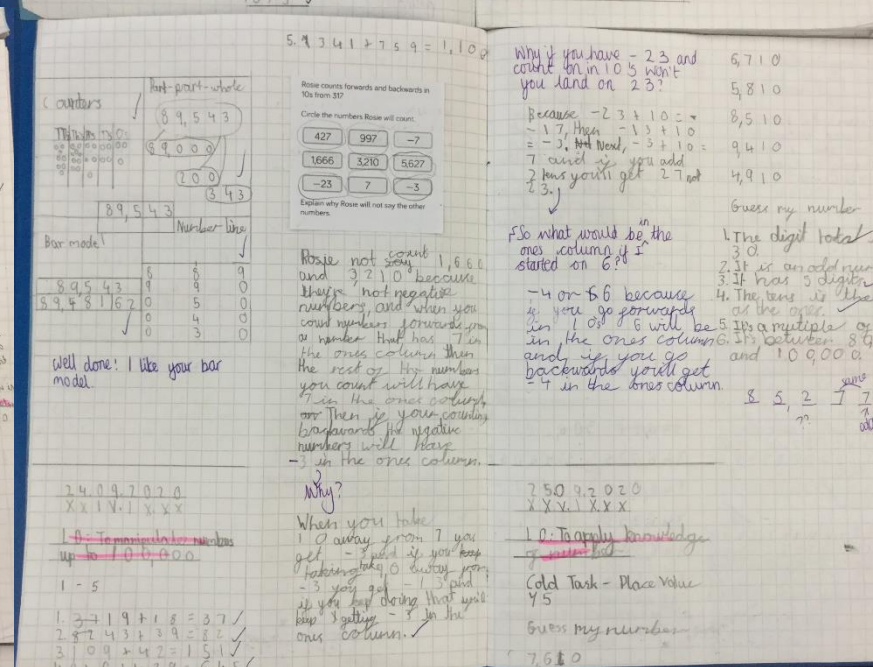 5. 341 + 759 = 1,100
Counters
Part-part-whole
89,543
89,000
200
343
89,543
Number line
Bar model
89,543
89,481 62
Well done! I like your bar
model
24.09.2020
XXIV.IX.XX
L.O: To manipulate numbers
up to 100,000
1 - 5
1. 3 + 19 + 18 = 37
Rosie counts forwards and backwards in
10s from 317
Circle the numbers Rosie will count.
427 997 −7
1,666 3,210 5,627
−23 7 −3
Explain why Rosie will not say the other
numbers.
Rosie not count 1,666
and 3,210 because
they're not negative
numbers, and when you
count numbers forwards from
a number that has 7 in
the ones column then
the rest of the numbers
you count will have
7 in the ones column,
Then if your counting
backwards the negative
numbers will have
-3 in the ones column.
Why?
When you take
10 away from 7 you
get -3 and if you keep
taking 10 away from
-3 you get -13 and
if you keep doing that you'll
keep getting -3 in the
ones column.
Why if you have -23 and
count on in 10s won't
you land on 23?
Because -23 + 10 =
-17, then -13 + 10
= -3. Next, -3 + 10 =
7 and if you add
2 tens you'll get 27 not
23.
So what would be in the
ones column if I
started on 6?
-4 or 6 because
if you go forwards
in 10s 6 will be
in the ones column
and if you go
backwards you'll get
-4 in the ones column.
25.09.2020
XXV.IX.XX
L.O: To apply knowledge
of
Cold Task - Place Value
Y5
Guess my number
7,610
6,710
5,810
8,510
9,410
4,910
Guess my number
1. The digit total
30.
2. It is an odd num
3. It has 5 digits
4. The tens is the
as the ones.
5. It's a multiple of
6. It's between 89
and 100,000.
same
8 5, 2 7 7
??
odd